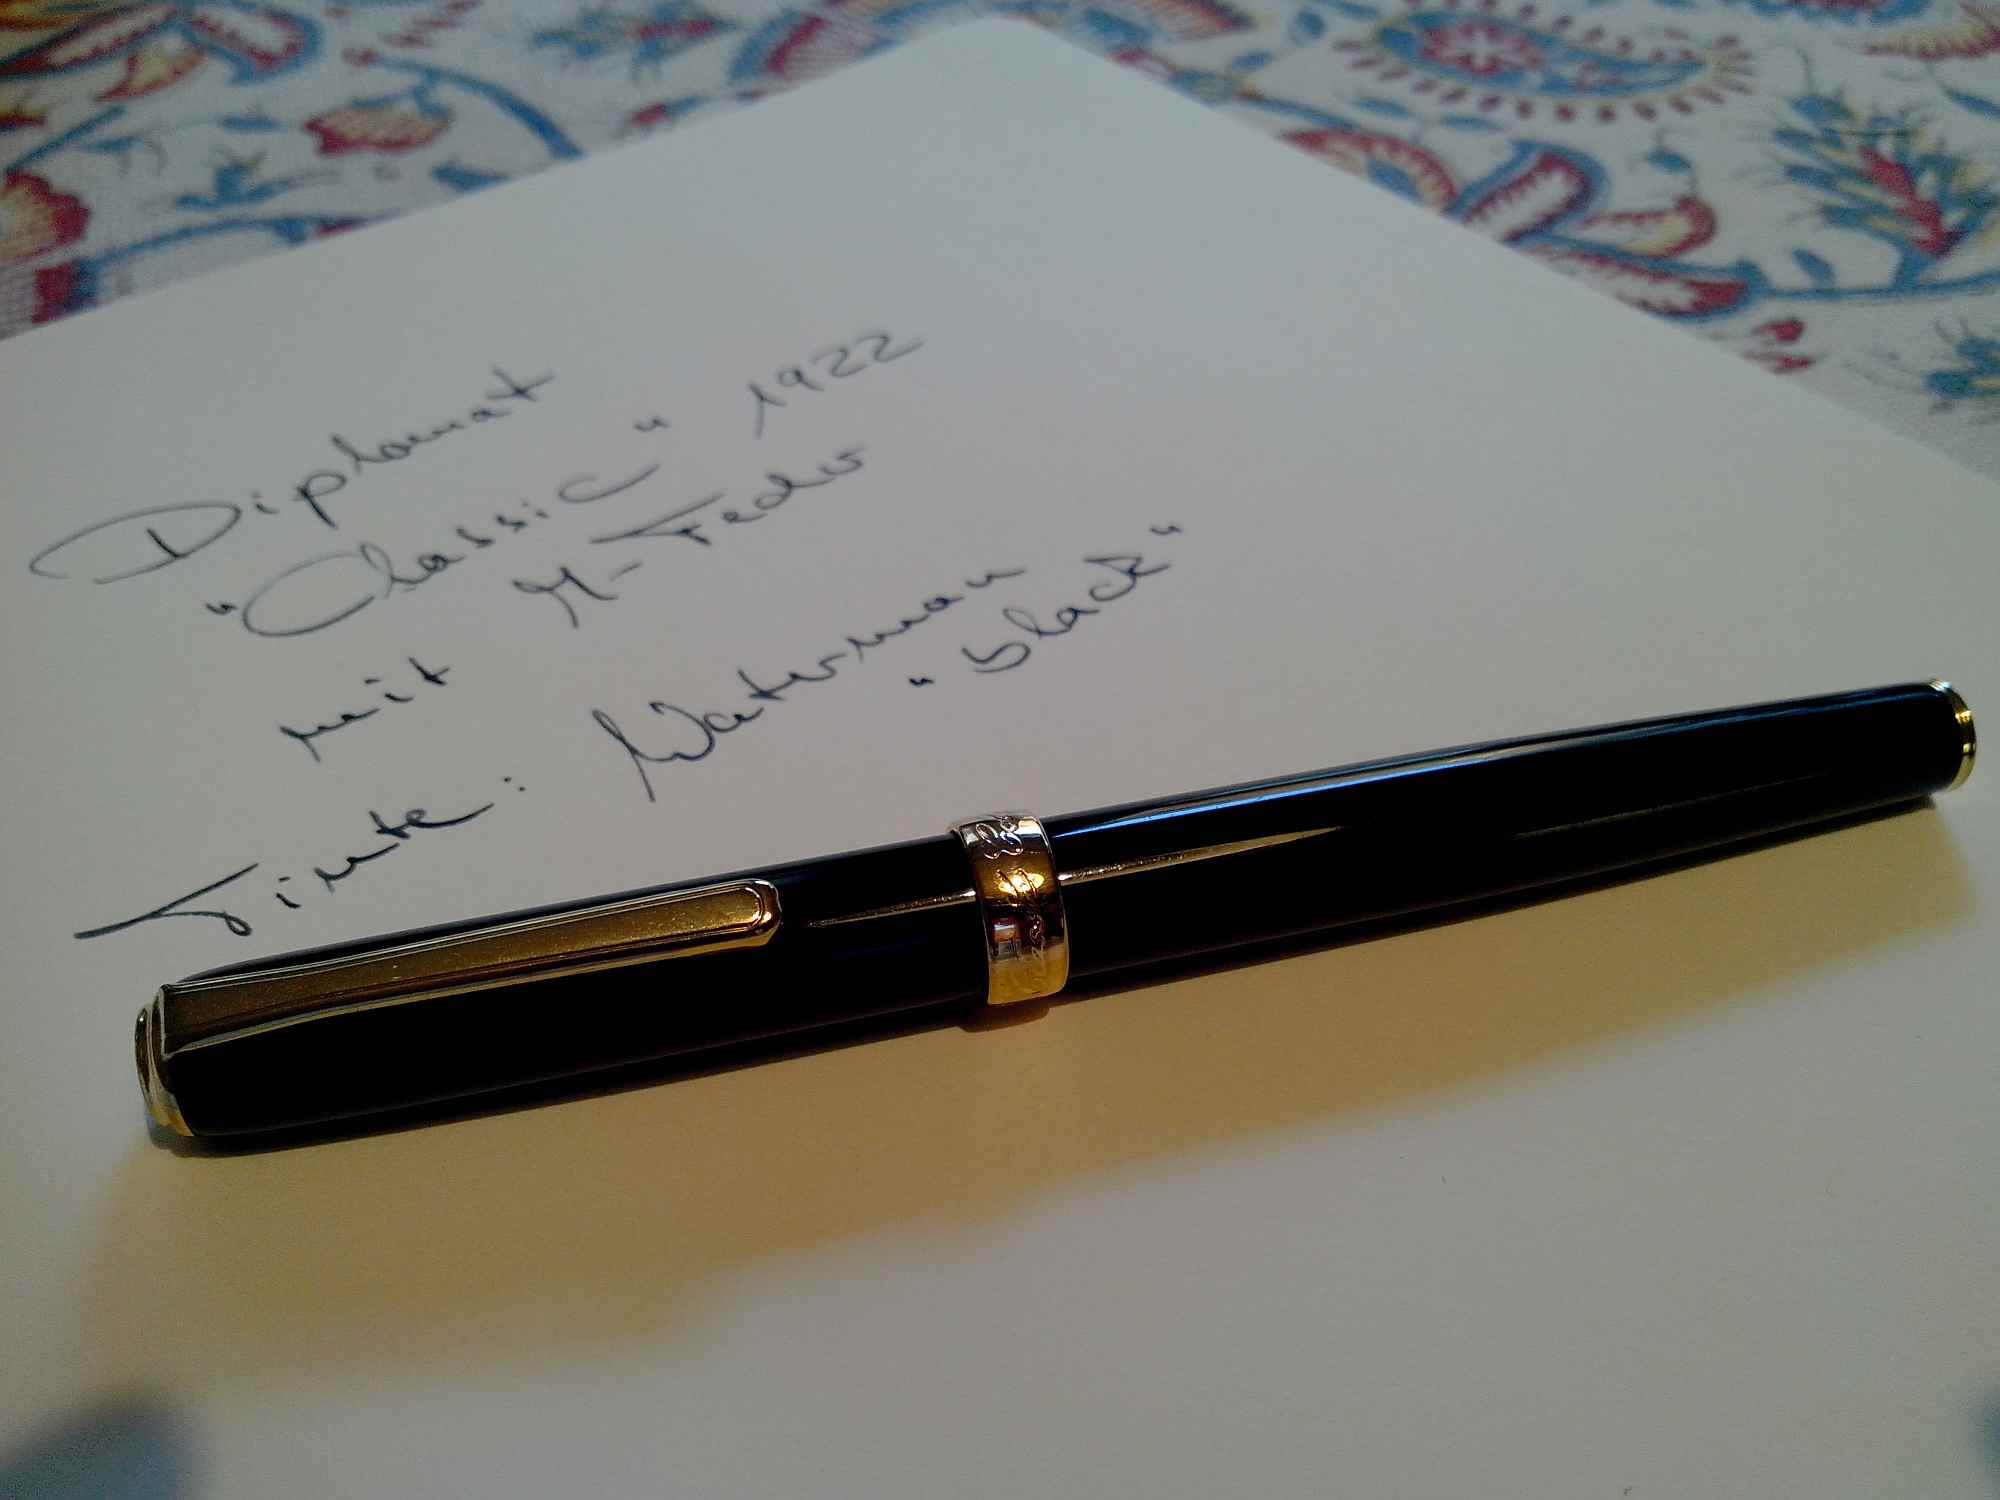 Diplomat
"Classic" 1922
mit M-Feder
Tinte: Waterman
"black"